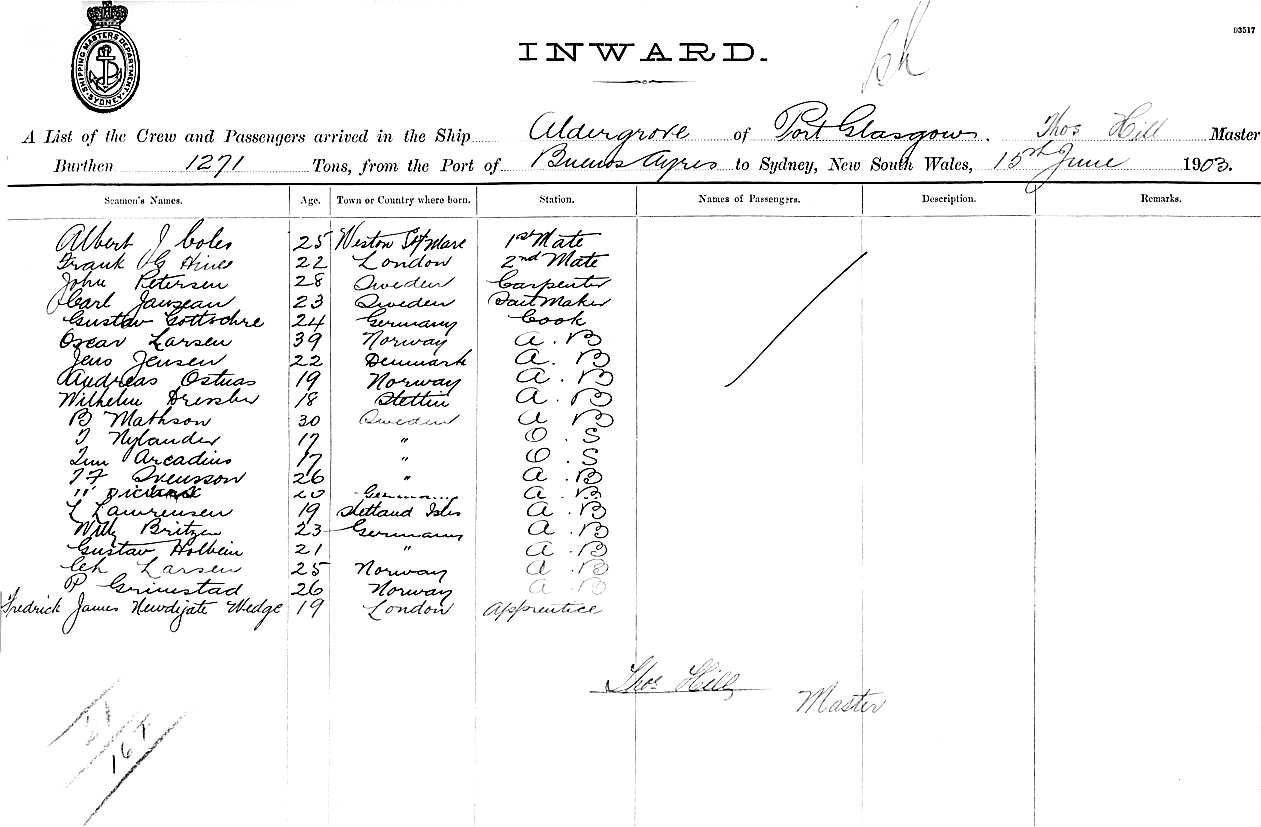 SHIPPING MASTERS DEPARTMENT. SYDNEY
93517
INWARD.
A List of the Crew and Passengers arrived in the Ship Aldergrove of Port Glasgow. Thos Hill Master
Burthen 1271 Tons, from the Port of Buenos Ayres to Sydney, New South Wales, 15th June 1903.
Seamen's Names. Age. Town or Country where born. Station. Names of Passengers. Description. Remarks.
Albert J Coles 25 Weston S Mare 1st Mate
Frank G Hine 22 London 2nd Mate
John Petersen 28 Sweden Carpenter
Carl 23 Sweden Sail Maker
Gustav 24 Germany Cook
Oscar Larsen 39 Norway A.B
Jens Jensen 22 Denmark A.B
Andreas 19 Norway A.B
Wilhelm 18 Stettin A.B
B Mathson 30 Sweden A B
Nylander 17 " O.S
Arcadius 17 " O.S
Svensson 26 " A.B
A.B
L Laurensen 19 Shetland Isles A.B
Willy Britzen 23 Germany A.B
Gustav Holbein 21 " A.B
Ch Larsen 25 Norway A.B
P Grimstad 26 Norway A B
Fredrick James Newdigate Wedge 19 London Apprentice
Thos Hill
Master
21
167